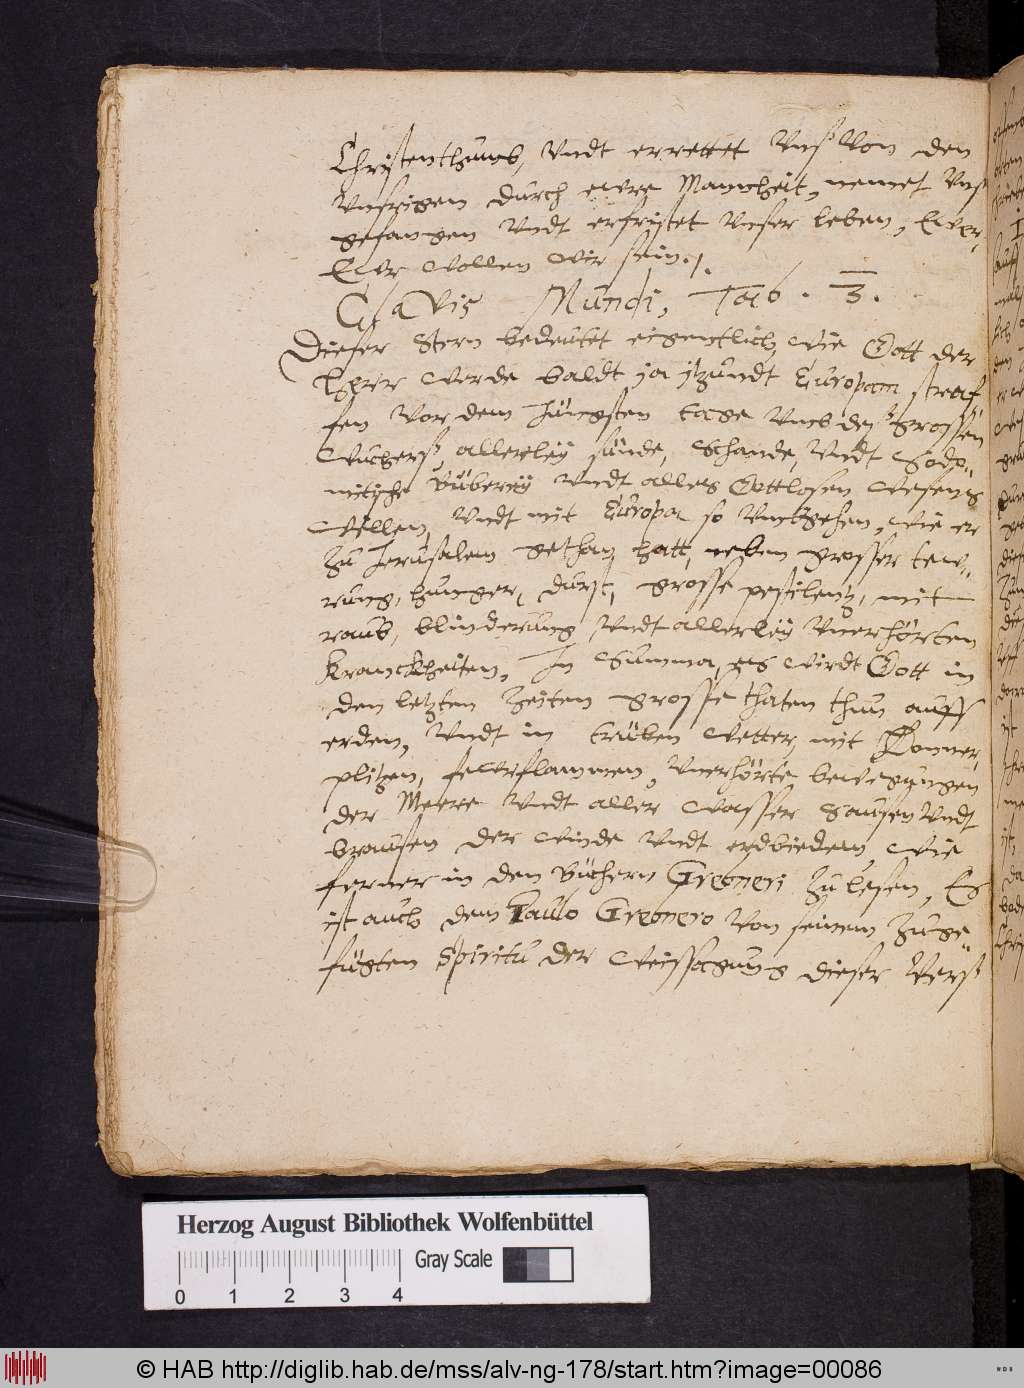 Christenthumb, Vndt errettet Vnß Von den
Vnsrigen durch ewre Mannheit, nemet Vnß
gefangen Vndt erfristet Vnser leben, Ewer,
Ewr wollen wir sein./.
Clavis Mundi, Tab. 3.
Dieser Stern bedeutet eigentlich, wie Gott der
Herr werde baldt ja itzundt Europam straf
fen Vor dem Jüngsten tage Vmb deß grossen
Wuchers, allerley sünde, Schande, Vndt Sodo-
mitische Büberey Vndt alles Gottlosen Wesens
Willen, Vndt mit Europa so Vmbgehen, wie er
zu Jerusalem gethan hatt, neben grosser tew-
rung, hunger, durst, grosse pestilentz, mit
raub, blinderung Vndt allerley Vnerhörten
Kranckheiten, In Summa, es wirdt Gott in
den letzten Zeiten grosse thaten thun auff
erden, Vndt in trüben Wetter, mit Donner,
plitzen, fewrflammen, Vnerhörte bewegungen
der Meere Vndt aller Wasser Sausen Vndt
brausen der Winde Vndt erdbiedem, wie
ferner in den Büchern Grebneri zu lesen, Es
ist auch dem Paulo Grebnero Von seinem zuge-
fügten Spiritu der Weissagung dieser Verß
Herzog August Bibliothek Wolfenbüttel
Gray Scale
0 1 2 3 4
© HAB http://diglib.hab.de/mss/alv-ng-178/start.htm?image=00086